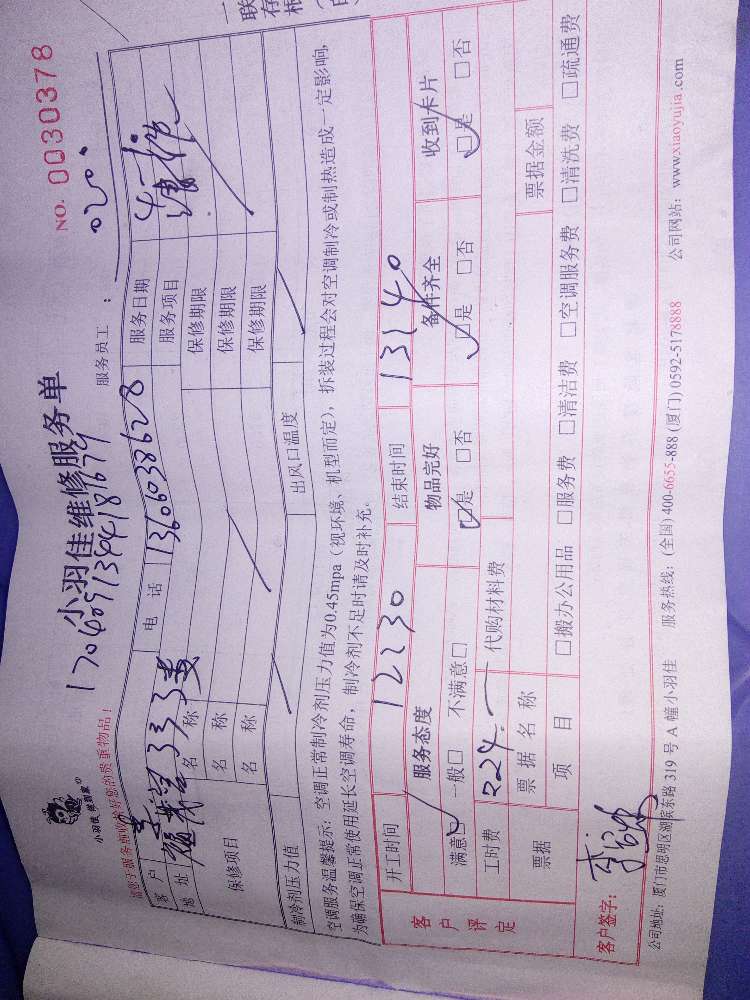 小羽佳维修服务单
NO. 0030378
170409139418674
小羽佳 维修家
请您于服务前收拾好您的贵重物品！
服务员工：
020.
客户
电话 13606038628
服务日期
地址
333
服务项目
保修项目
名称
保修期限
名称
保修期限
名称
保修期限
制冷剂压力值
出风口温度
空调服务温馨提示：空调正常制冷剂压力值为0.45mpa（视环境、机型而定），拆装过程会对空调制冷或制热造成一定影响，
为确保空调正常使用延长空调寿命，制冷剂不足时请及时补充。
客户评定
开工时间 1230
结束时间 1340
服务态度
物品完好
备件齐全
收到卡片
满意□ 一般□ 不满意□
□是 □否
□是 □否
□是 □否
工时费 224.
代购材料费
票据
票据名称
票据金额
项目
□搬办公用品 □服务费 □清洁费 □空调服务费 □清洗费 □疏通费
客户签字：
公司地址：厦门市思明区湖滨东路 319 号 A 幢小羽佳 服务热线：(全国) 400-6655-888 (厦门) 0592-5178888 公司网站：www.xiaoyujia.com
联
存
根